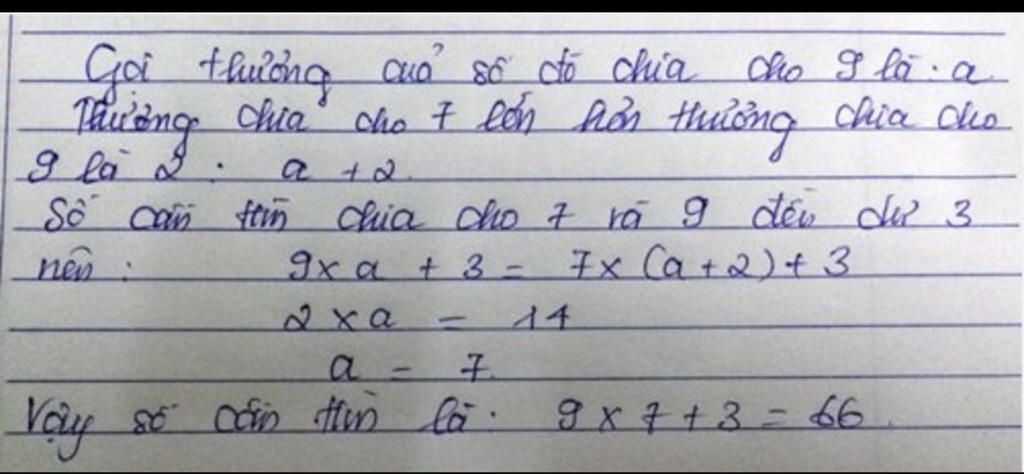 Gọi thương của số đó chia cho 9 là: a
Thương chia cho 7 lớn hơn thương chia cho
9 là 2: a + 2.
Số cần tìm chia cho 7 và 9 đều dư 3
nên: 9 x a + 3 = 7 x (a + 2) + 3
2 x a = 14
a = 7.
Vậy số cần tìm là: 9 x 7 + 3 = 66.